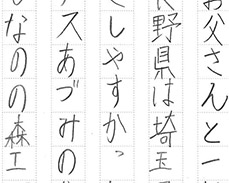 お父さんと一
野県は埼玉
しやすかっ
スあづみの
なのの森エ